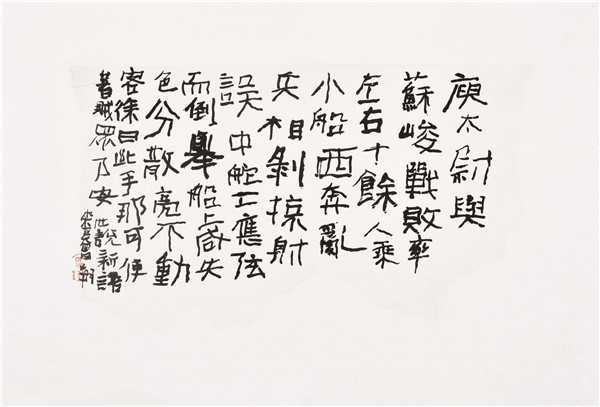 庾太尉與
蘇峻戰敗率
左右十餘人乘
小船西奔亂
兵相剝掠射
誤中舵工應弦
而倒舉船上咸失
色分散亮不動
容徐曰此手那可使
著賊眾乃安 世說新語